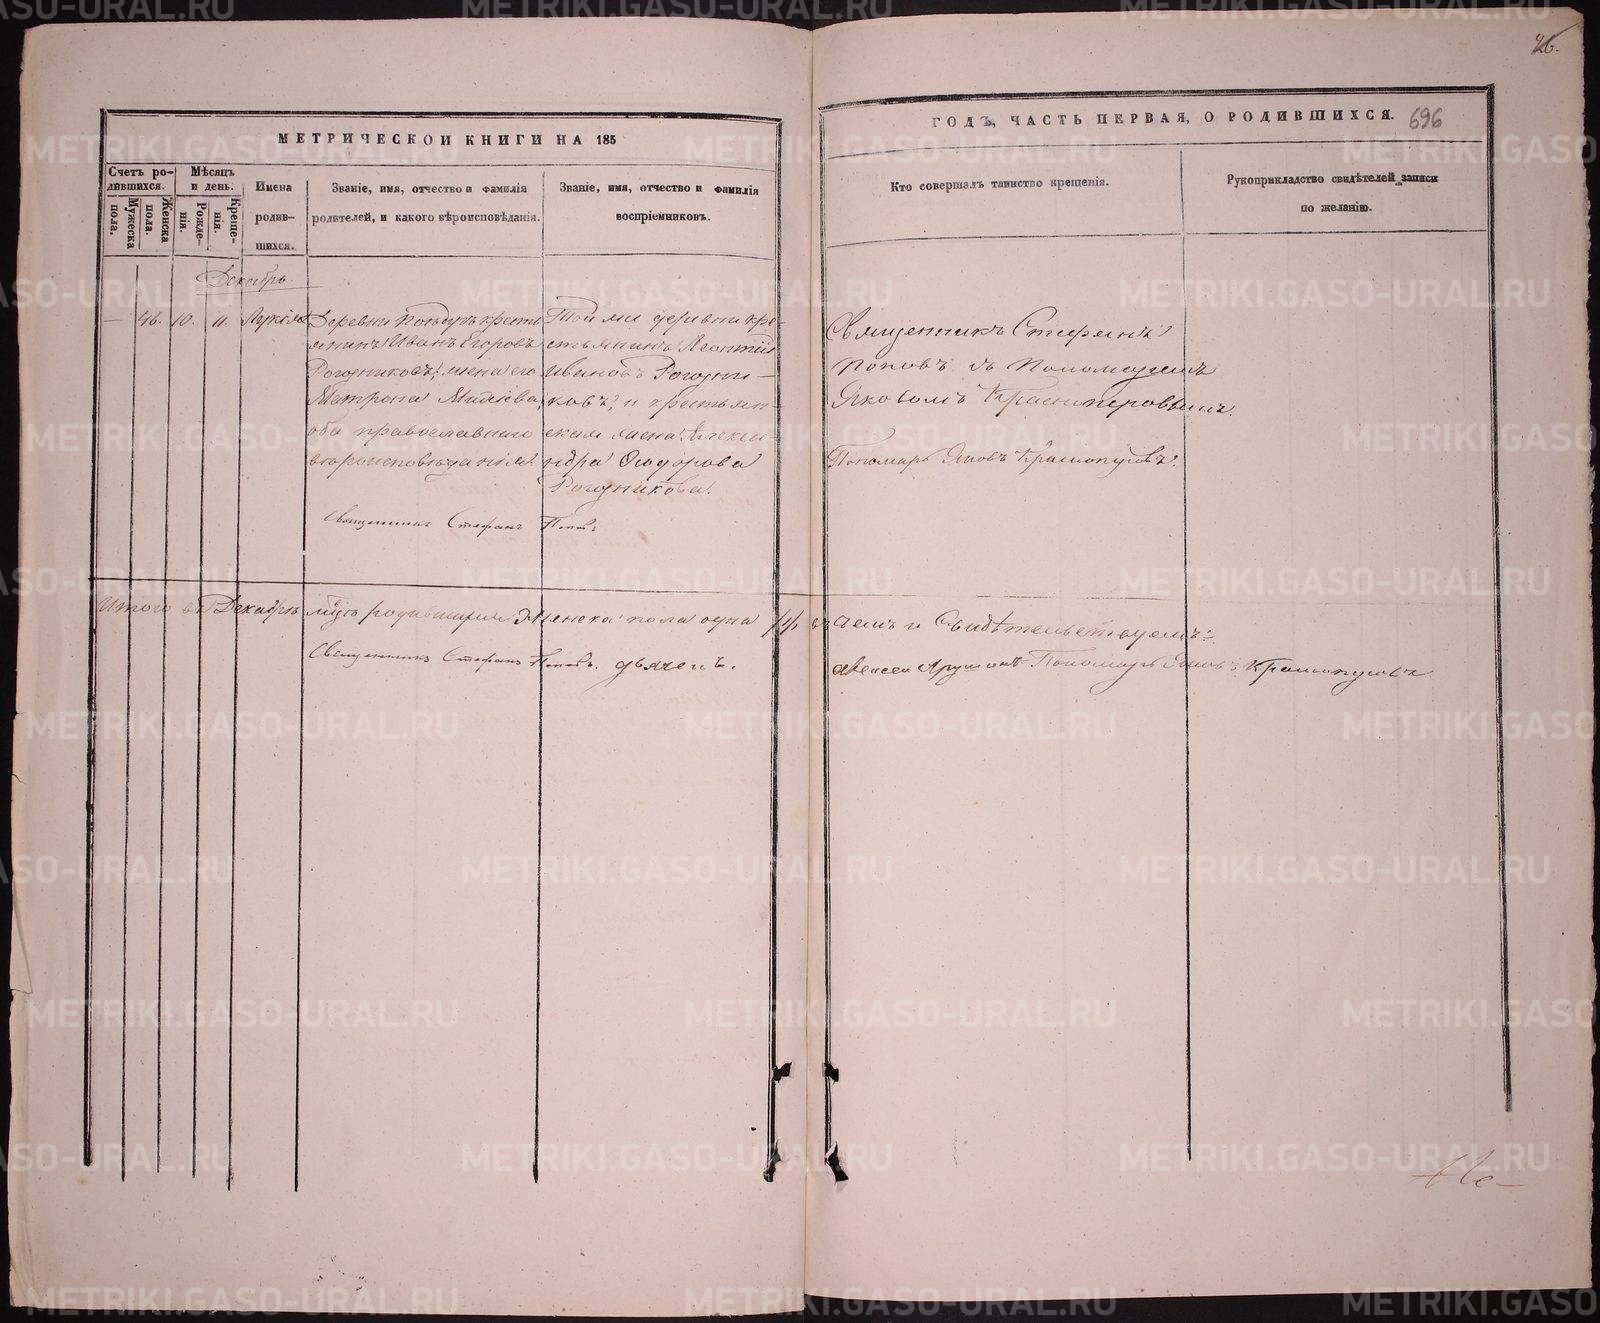 46.
МЕТРИЧЕСКОЙ КНИГИ НА 185
ГОДЪ, ЧАСТЬ ПЕРВАЯ, О РОДИВШИХСЯ. 696
Счетъ ро-
дившихся.
Мужеска пола.
Женска пола.
Мѣсяцъ
и день.
Рожде-
нія.
Креще-
нія.
Имена
родив-
шихся.
Званіе, имя, отчество и фамилія
родителей, и какого вѣроисповѣданія.
Званіе, имя, отчество и фамилія
воспріемниковъ.
Кто совершалъ таинство крещенія.
Рукоприкладство свидѣтелей записи
по желанію.
Декабрь
— 46. 10. 11. Лукія
Деревни крестья
янинъ Иванъ Егоровъ
Рогозниковъ; жена его
Матрона
оба православнаго
вѣроисповѣданія.
Той же деревни кре-
стьянинъ Леонтій
Ивановъ Рогозни-
ковъ, и крестьян-
ская жена Алекса-
ндра Ѳеодорова
Рогозникова.
Священникъ Стефанъ Поповъ
Священникъ Стефанъ
Поповъ съ Пономаремъ
Яковомъ Красноперовымъ.
Пономарь Яковъ
Итого въ Декабрѣ мцѣ родившихся Женска пола одна
Священникъ Стефанъ Поповъ. дьячекъ.
и Свидѣтельствуемъ:
Алексей Пономарь Яковъ
METRIKI.GASO-URAL.RU